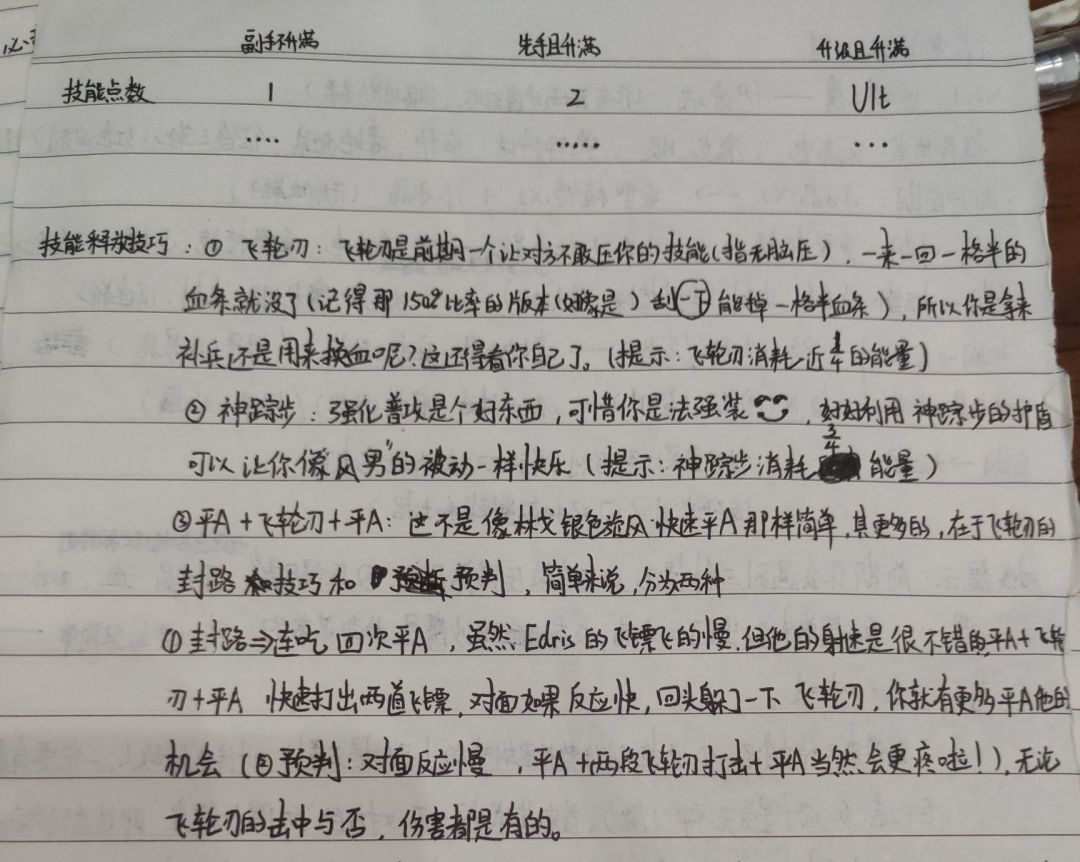 副手不升满 先手且升满 升级且升满
技能点数 1 2 Ult
.... ..... ...
技能释放技巧：① 飞轮刃：飞轮刃是前期一个让对方不敢压你的技能（指无脑压），一来一回一格半的
血条就没了（记得那150%比率的版本（好像是）刮一下能掉一格半血条），所以你是拿来
补兵还是用来换血呢？这还得看你自己了。（提示：飞轮刃消耗近1/4的能量）
② 神踪步：强化普攻是个好东西，可惜你是法强装，好好利用神踪步的护盾
可以让你像风男"的被动一样快乐（提示：神踪步消耗3/4能量）
③平A+飞轮刃+平A：这不是像林戈银色旋风快速平A那样简单，其更多的，在于飞轮刃的
封路技巧和预判，简单来说，分为两种
①封路⇒连吃四次平A，虽然Edris的飞镖飞的慢，但他的射速是很不错的平A+飞轮
刃+平A 快速打出两道飞镖，对面如果反应快，回头躲了一下飞轮刃，你就有更多平A他的
机会（②预判：对面反应慢，平A+两段飞轮刃打击+平A当然会更疼啦！），无论
飞轮刃的击中与否，伤害都是有的。